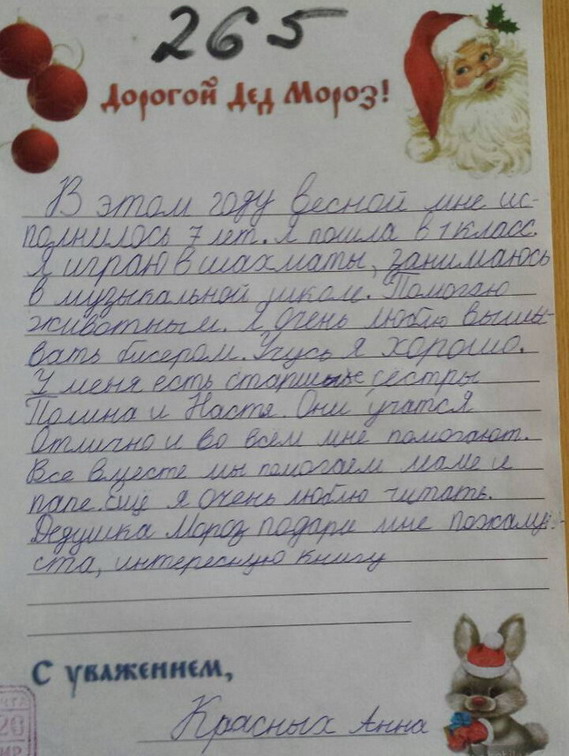 265
Дорогой Дед Мороз!
В этом году весной мне ис-
полнилось 7 лет. Я пошла в 1 класс.
Я играю в шахматы, занимаюсь
в музыкальной школе. Помогаю
животным. Я очень люблю выши-
вать бисером. Учусь я хорошо.
У меня есть старшие сестры
Полина и Настя. Они учатся
отлично и во всем мне помогают.
Все вместе мы помогаем маме и
папе. Ещё я очень люблю читать.
Дедушка Мороз подари мне пожалуй-
ста, интересную книгу
С уважением,
Красных Анна
20